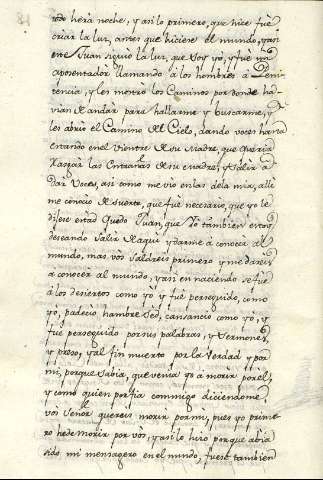 todo herà noche, y asi lo primero, que hice fuè
criar la luz, antes que hiciese el mundo, y asi
este Juan siguio la luz, que soy yo, y fue mi
aposentador llamando à los hombres à Peni
tencia, y les mostro los Caminos por donde ha-
vian de andar para hallarme y buscarme, y
les abrio el Camino del Cielo, dando voces hasta
estando en el vientre de su Madre, que queria
rasgar las Entrañas de su madre, y salir a
dar voces, asi como me vio en las de la mia, alli
me conocio de suerte, que fue necesario, que yo le
dijese estad quedo Juan, que Yo tambien estoy
deseando salir de aqui y darme à conocer al
mundo, mas vos saldreis primero y me dareis
à conocer al mundo, y asi en naciendo se fuè
á los desiertos como yò y fuè perseguido, como
yo, padeciò hambre sed, cansancio como yo, y
fuè perseguido por sus palabras, y sermones,
y preso, y al fin muerto por la Verdad y por
mi, porque sabia, que venia yo à morir por èl,
y como quien porfia conmigo diciendome,
vos señor quereis morir por mi, pues yo prime-
ro he de morir por vòs, y asi lo hizo porque abia
sido mi mensagero en el mundo, fuese tambien